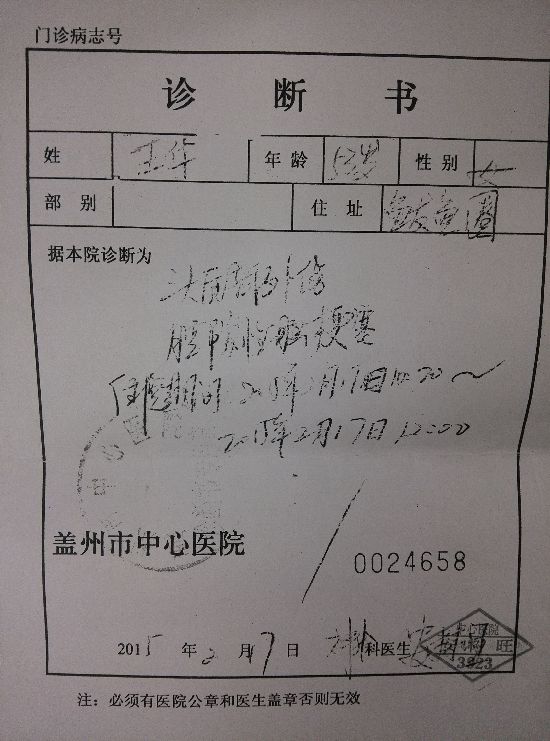 门诊病志号
诊断书
姓 王华 年龄 52岁 性别 女
部别 住址 鲅鱼圈
据本院诊断为
头面部外伤
腔隙性脑梗塞
住院期间 2015年2月17日10:20～
2015年2月17日12:00
盖州市中心医院
0024658
2015年2月17日 科医生
中心医院
旺
3823
注：必须有医院公章和医生盖章否则无效